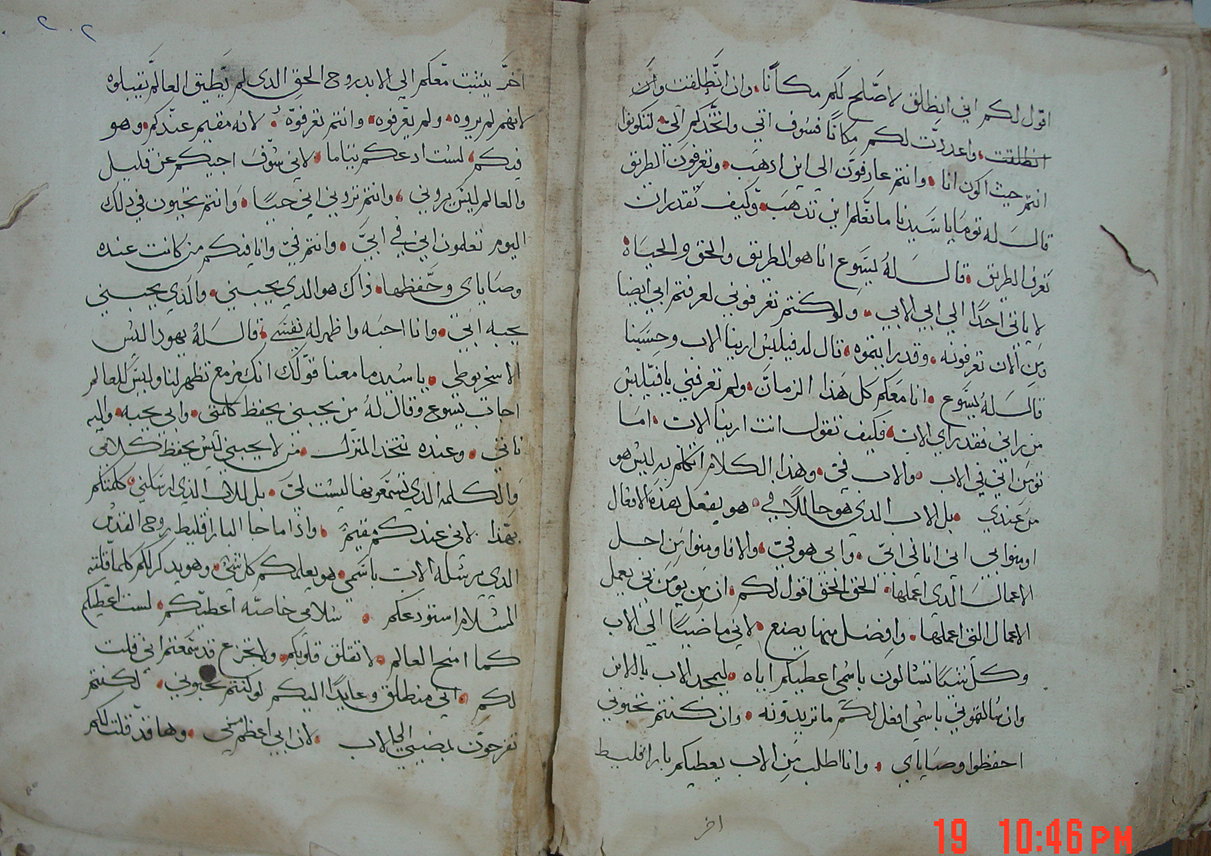 اقول لكم اني انطلق لاصلح لكم مكانا وان انطلقت وان
انطلقت واعددت لكم مكانا فسوف اتي واتخذكم الي لتكونوا
انتم حيث اكون انا وانتم عارفون الي اين ادهب وتعرفون الطريق
قال له توما يا سيدنا ما نعلم اين تدهب وكيف نقدر ان
نعرف الطريق قال له يسوع انا هو الطريق والحق والحياه
لا ياتي احدا الي ابي الا بي ولو كنتم تعرفوني لعرفتم ابي ايضا
ومن الان تعرفونه وقد رايتموه قال له فيلبس ارينا الاب وحسبنا
قال له يسوع انا معكم كل هدا الزمان ولم تعرفني يا فيلبس
من راني فقد راي الاب فكيف تقول انت ارينا الاب اما
تومن اني في الاب والاب في وهدا الكلام اتكلم به ليس هو
من عندي بل الاب الدي هو حال في هو يفعل بهده الافعال
اومنوا بي اني انا في ابي وابي هو في والا فاومنوا من اجل
الاعمال الدي اعملها الحق الحق اقول لكم ان من يومن بي يعمل
الاعمال التي اعملها وافضل منها يصنع لاني ماضيا الي الاب
وكل شيا تسالون باسمي اعطيكم اياه ليمجد الاب بالابن
وان سالتموني باسمي افعل لكم ما تريدونه وان كنتم تحبوني
احفظوا وصاياي وانا اطلب من الاب يعطيكم بارا قليط
اخر
٢٠٢
اخر يثبت معكم الي الابد روح الحق الدي لم يطيق العالم يقبلوه
لانهم لم يروه ولم يعرفوه وانتم تعرفوه لانه مقيم عندكم وهو
فيكم لست ادعكم يتاما لاني سوف اجيكم عن قليل
والعالم ليس يروني وانتم تروني اني حيا وانتم تحيون في دلك
اليوم تعلمون اني في ابي وانتم في وانا فيكم من كانت عنده
وصاياي وحفظها داك هو الدي يحبني والدي يحبني
يحبه ابي وانا احبه واظهر له نفسي قال له يهودا ليس
الاسخريوطي يا سيد ما معنا قولك انك مزمع تظهر لنا وليس للعالم
اجاب يسوع وقال له من يحبني يحفظ كلمتي وابي يحبه واليه
ناتي وعنده نتخد المنزل من لا يحبني ليس يحفظ كلامي
والكلمه الدي تسمعونها ليست لي بل للاب الدي ارسلني كلمتكم
بهدا لاني عندكم مقيم وادا ما جا البارا قليط روح القدس
الدي يرسله الاب باسمي هو يعلمكم كل شي وهو يدكركم كلما قلته
السلام استودعكم سلامي خاصته اعطيكم لست اعطيكم
كما امنح العالم لا تقلق قلوبكم ولا تجزع قد سمعتم اني قلت
لكم اني منطلق وعايدا اليكم لو كنتم تحبوني لكنتم
تفرحون بمضيي الي الاب لان ابي اعظم مني وها قد قلت لكم
19 10:46 PM